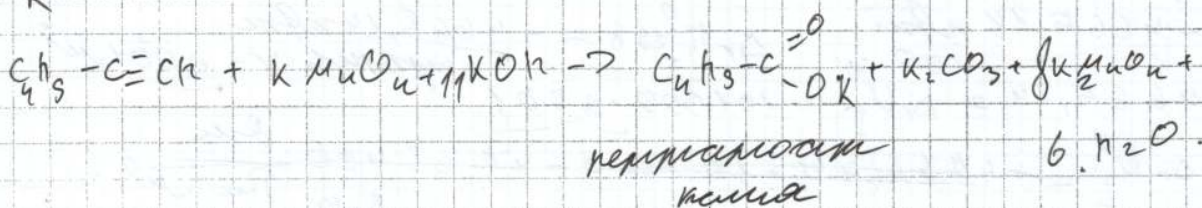 C₄H₉-C≡CH + KMnO₄ + 11KOH -> C₄H₉-C(=O)OK + K₂CO₃ + 8K₂MnO₄ +
6.H₂O.
пентаноат
калия